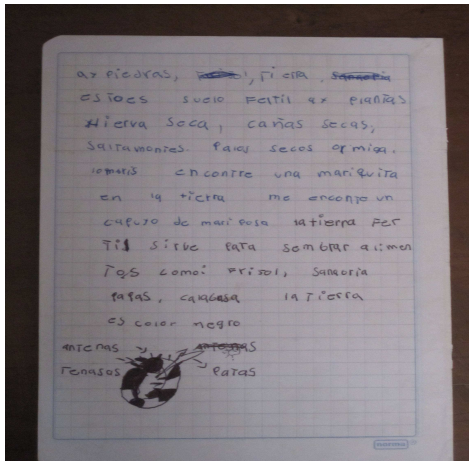 ax piedras, tierra,
esto es suelo Fertil ax plantas
Hierva seca, cañas secas,
saltamontes. Palos secos ormiga.
encontre una mariquita
en la tierra me encontre un
capuyo de mariposa la tierra Fer
Til sirve para sembrar alimen
Tos como: Frisol, sanaoria
papas, calabasa la Tierra
es color negro
antenas antenas
Tenasos Patas
norma